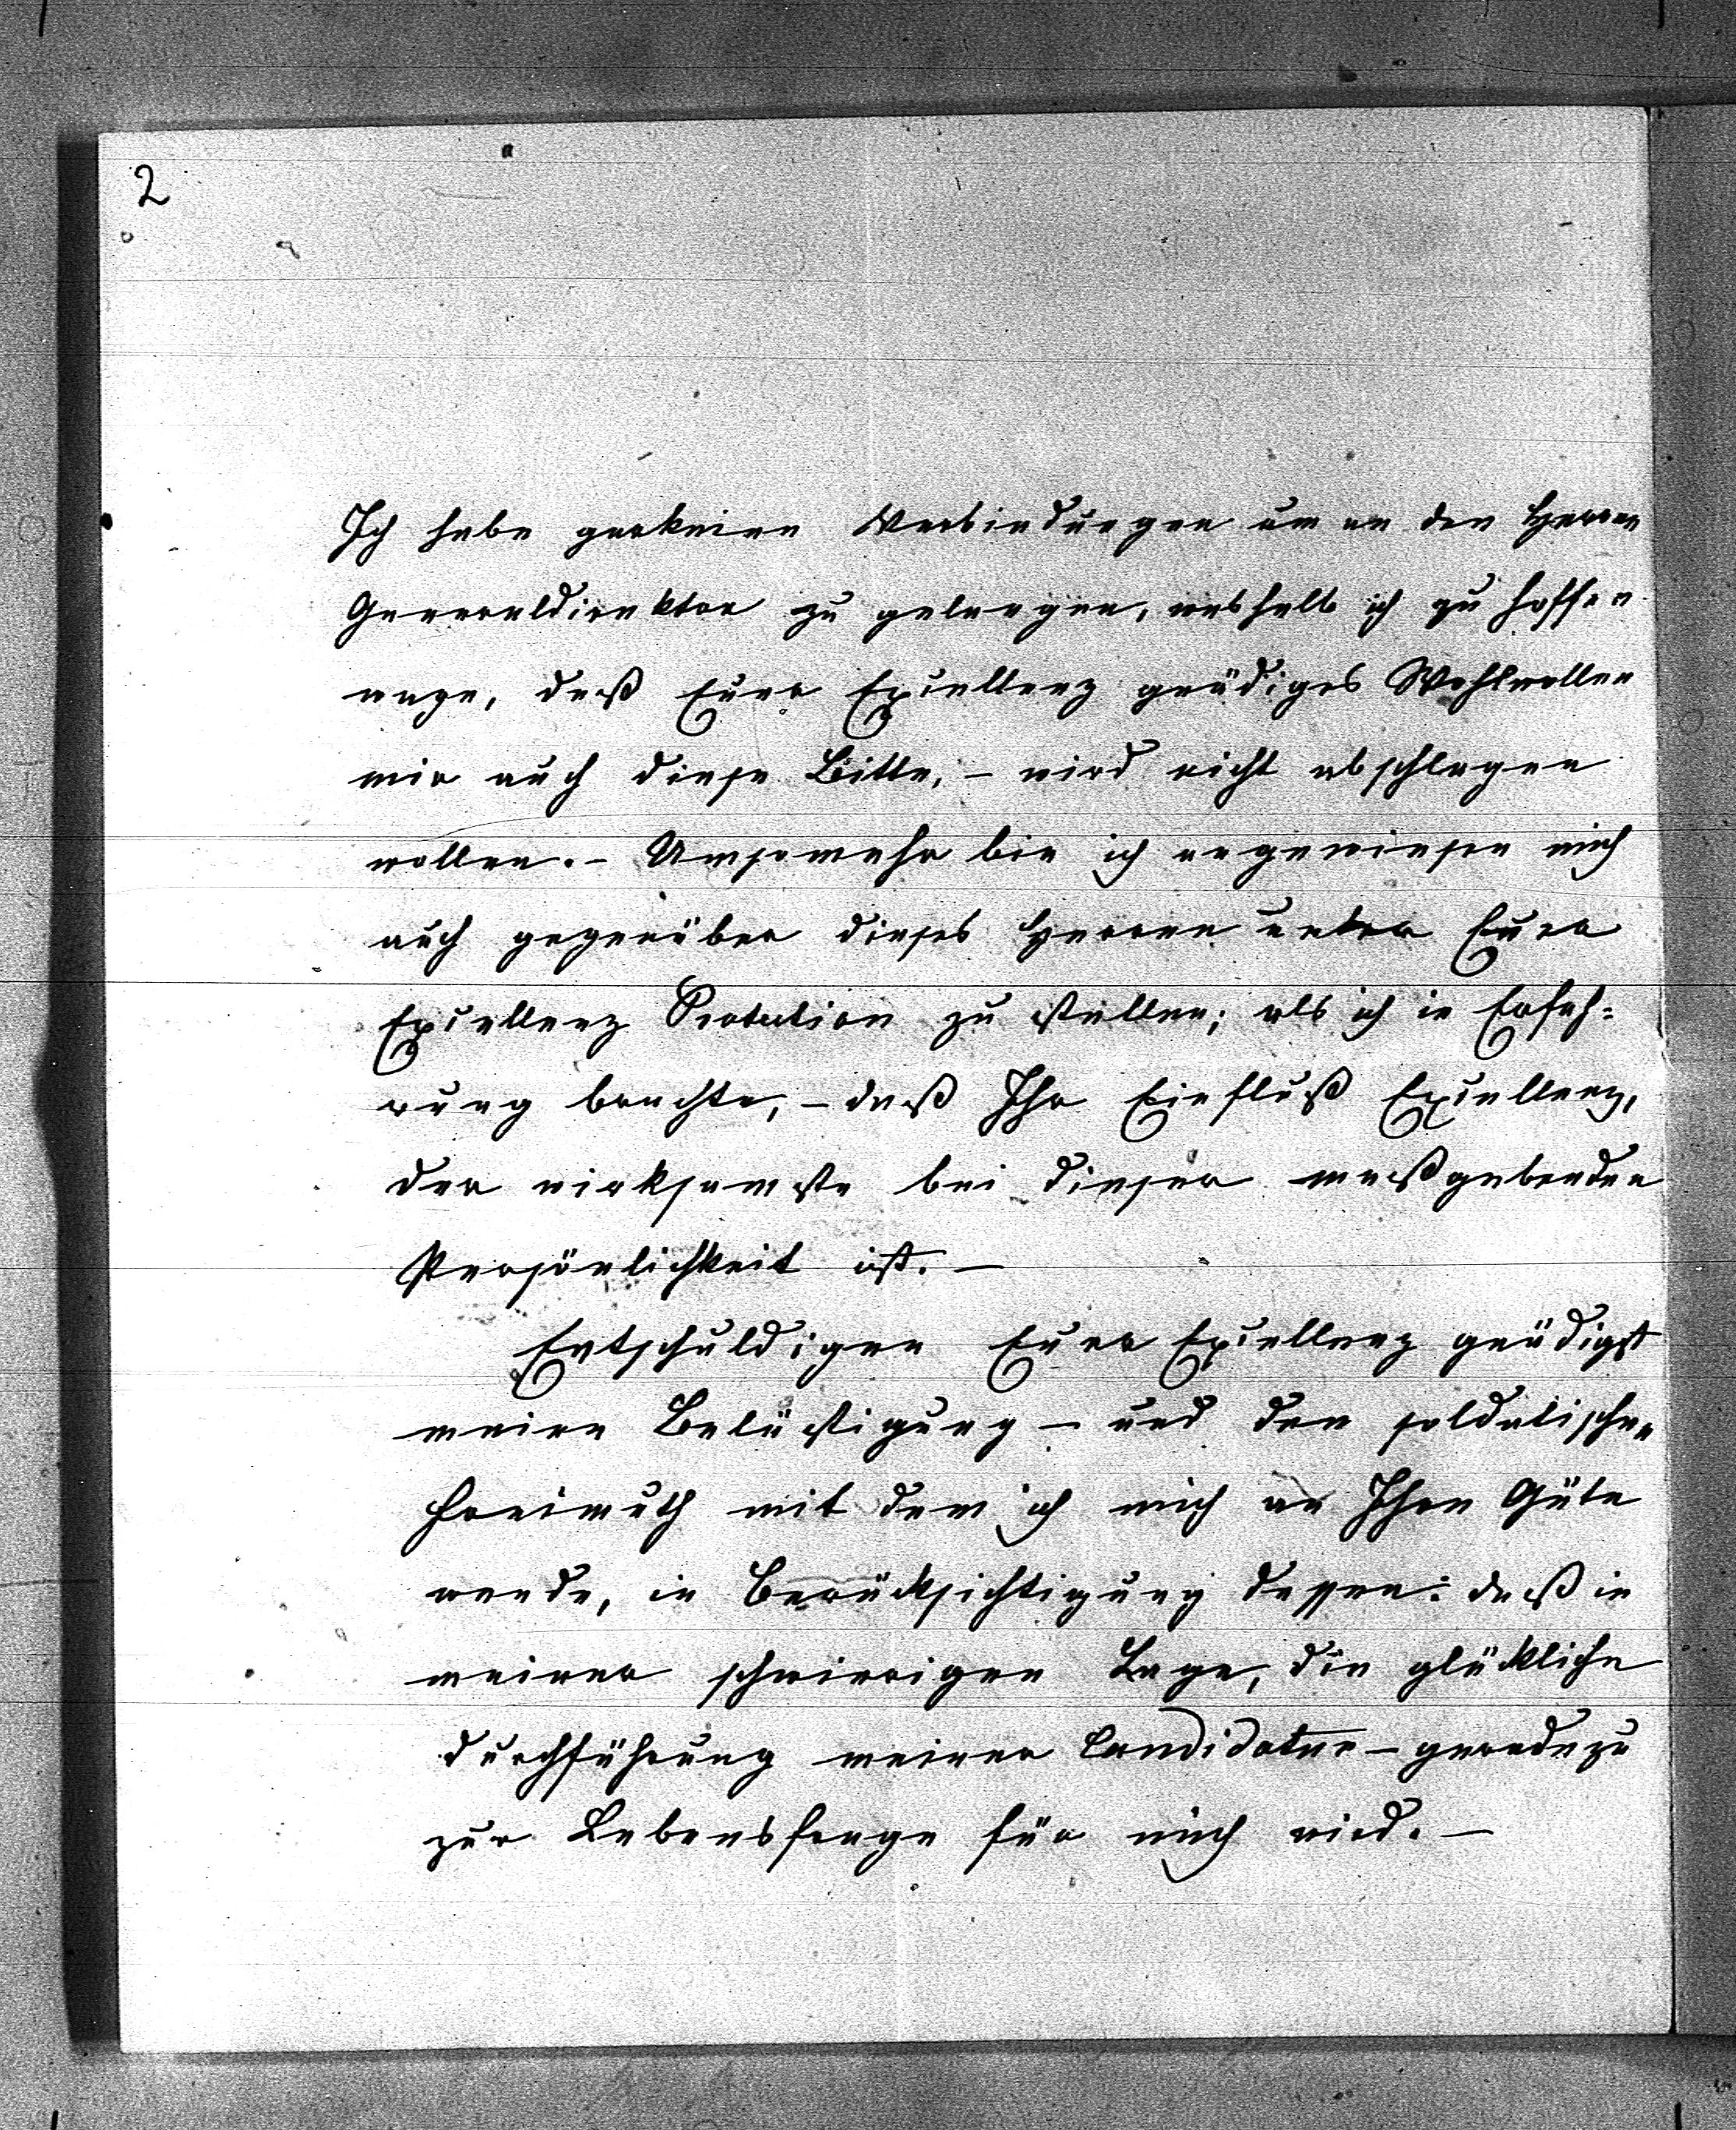 2
Ich habe gar keine Verbindungen um an den Herren
Generaldirektor zu gelangen, weshalb ich zu hoffen
wage, daß Euer Excellenz gnädiges Wohlwollen
mir auch diese Bitte, – wird nicht abschlagen
wollen. – Umsomehr bin ich angewiesen mich
auch gegenüber dieses Herren unter Euer
Excellenz Protection zu stellen; als ich in Erfah=
rung brachte, – daß Ihr Einfluß Excellenz,
der wirksamste bei dieser maßgebenden
Persönlichkeit ist. –
Entschuldigen Euer Excellenz gnädigst
meine Belästigung – und den soldatischen
Freimuth mit dem ich mich an Ihre Güte
wende, in Berücksichtigung dessen: daß in
meiner schwierigen Lage, die glückliche
Durchführung meiner Candidatur – geradezu
zur Lebensfrage für mich wird. –